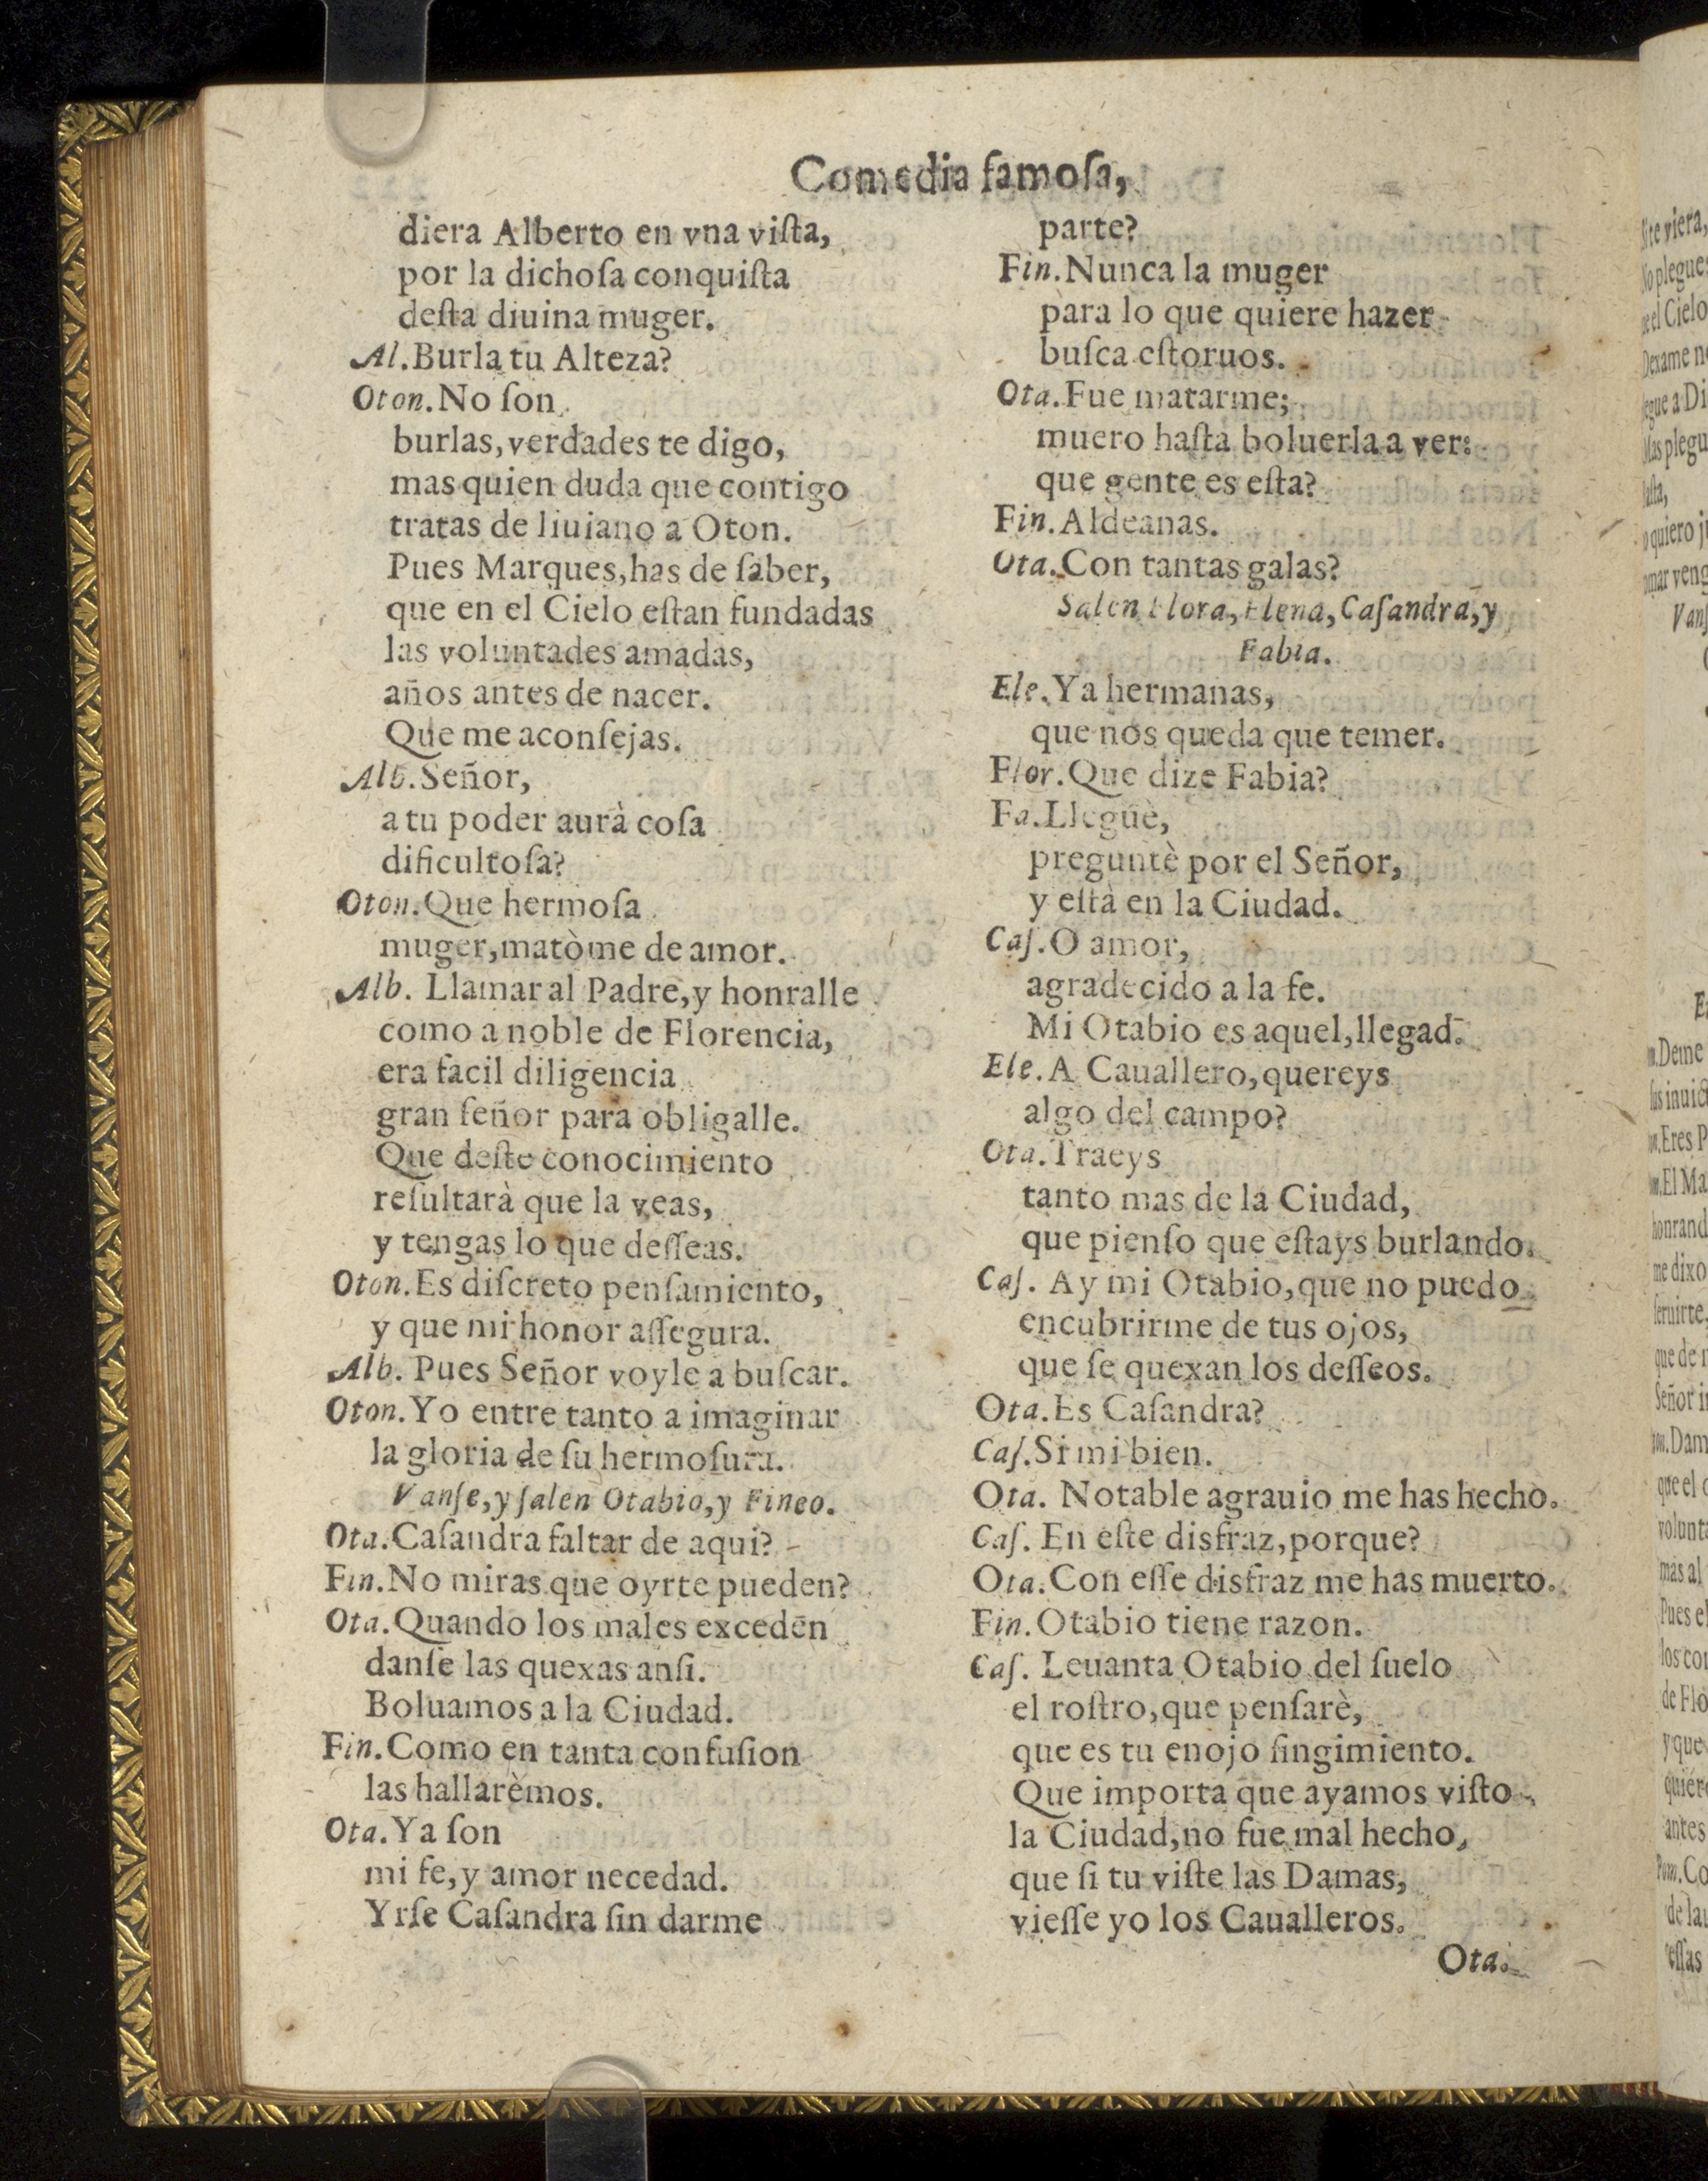 Comedia famoſa,
diera Alberto en vna viſta,
por la dichoſa conquiſta
deſta diuina muger.
Al. Burla tu Alteza?
Oton. No ſon
burlas, verdades te digo,
mas quien duda que contigo
tratas de liuiano a Oton.
Pues Marques, has de ſaber,
que en el Cielo eſtan fundadas
las voluntades amadas,
años antes de nacer.
Que me aconſejas.
Alb. Señor,
a tu poder aurà coſa
dificultoſa?
Oton. Que hermoſa
muger, matòme de amor.
Alb. Llamar al Padre, y honralle
como a noble de Florencia,
era facil diligencia
gran ſeñor para obligalle.
Que deſte conocimiento
reſultarà que la veas,
y tengas lo que deſſeas.
Oton. Es diſcreto penſamiento,
y que mi honor aſſegura.
Alb. Pues Señor voyle a buſcar.
Oton. Yo entre tanto a imaginar
la gloria de ſu hermoſura.
Vanſe, y ſalen Otabio, y Fineo.
Ota. Caſandra faltar de aqui?
Fin. No miras que oyrte pueden?
Ota. Quando los males excedēn
danſe las quexas anſi.
Boluamos a la Ciudad.
Fin. Como en tanta confuſion
las hallarèmos.
Ota. Ya ſon
mi fe, y amor necedad.
Yrſe Caſandra ſin darme
parte?
Fin. Nunca la muger
para lo que quiere hazer
buſca eſtoruos.
Ota. Fue matarme;
muero haſta boluerla a ver:
que gente es eſta?
Fin. Aldeanas.
Ota. Con tantas galas?
Salen Flora, Elena, Caſandra, y
Fabia.
Ele. Ya hermanas,
que nos queda que temer.
Flor. Que dize Fabia?
Fa. Lleguè,
preguntè por el Señor,
y eſtà en la Ciudad.
Caſ. O amor,
agradecido a la fe.
Mi Otabio es aquel, llegad.
Ele. A Cauallero, quereys
algo del campo?
Ota. Traeys
tanto mas de la Ciudad,
que pienſo que eſtays burlando.
Caſ. Ay mi Otabio, que no puedo
encubrirme de tus ojos,
que ſe quexan los deſſeos.
Ota. Es Caſandra?
Caſ. Si mi bien.
Ota. Notable agrauio me has hecho.
Caſ. En eſte disfraz, porque?
Ota. Con eſſe disfraz me has muerto.
Fin. Otabio tiene razon.
Caſ. Leuanta Otabio del ſuelo
el roſtro, que penſarè,
que es tu enojo fingimiento.
Que importa que ayamos viſto
la Ciudad, no fue mal hecho,
que ſi tu viſte las Damas,
vieſſe yo los Caualleros.
Ota.